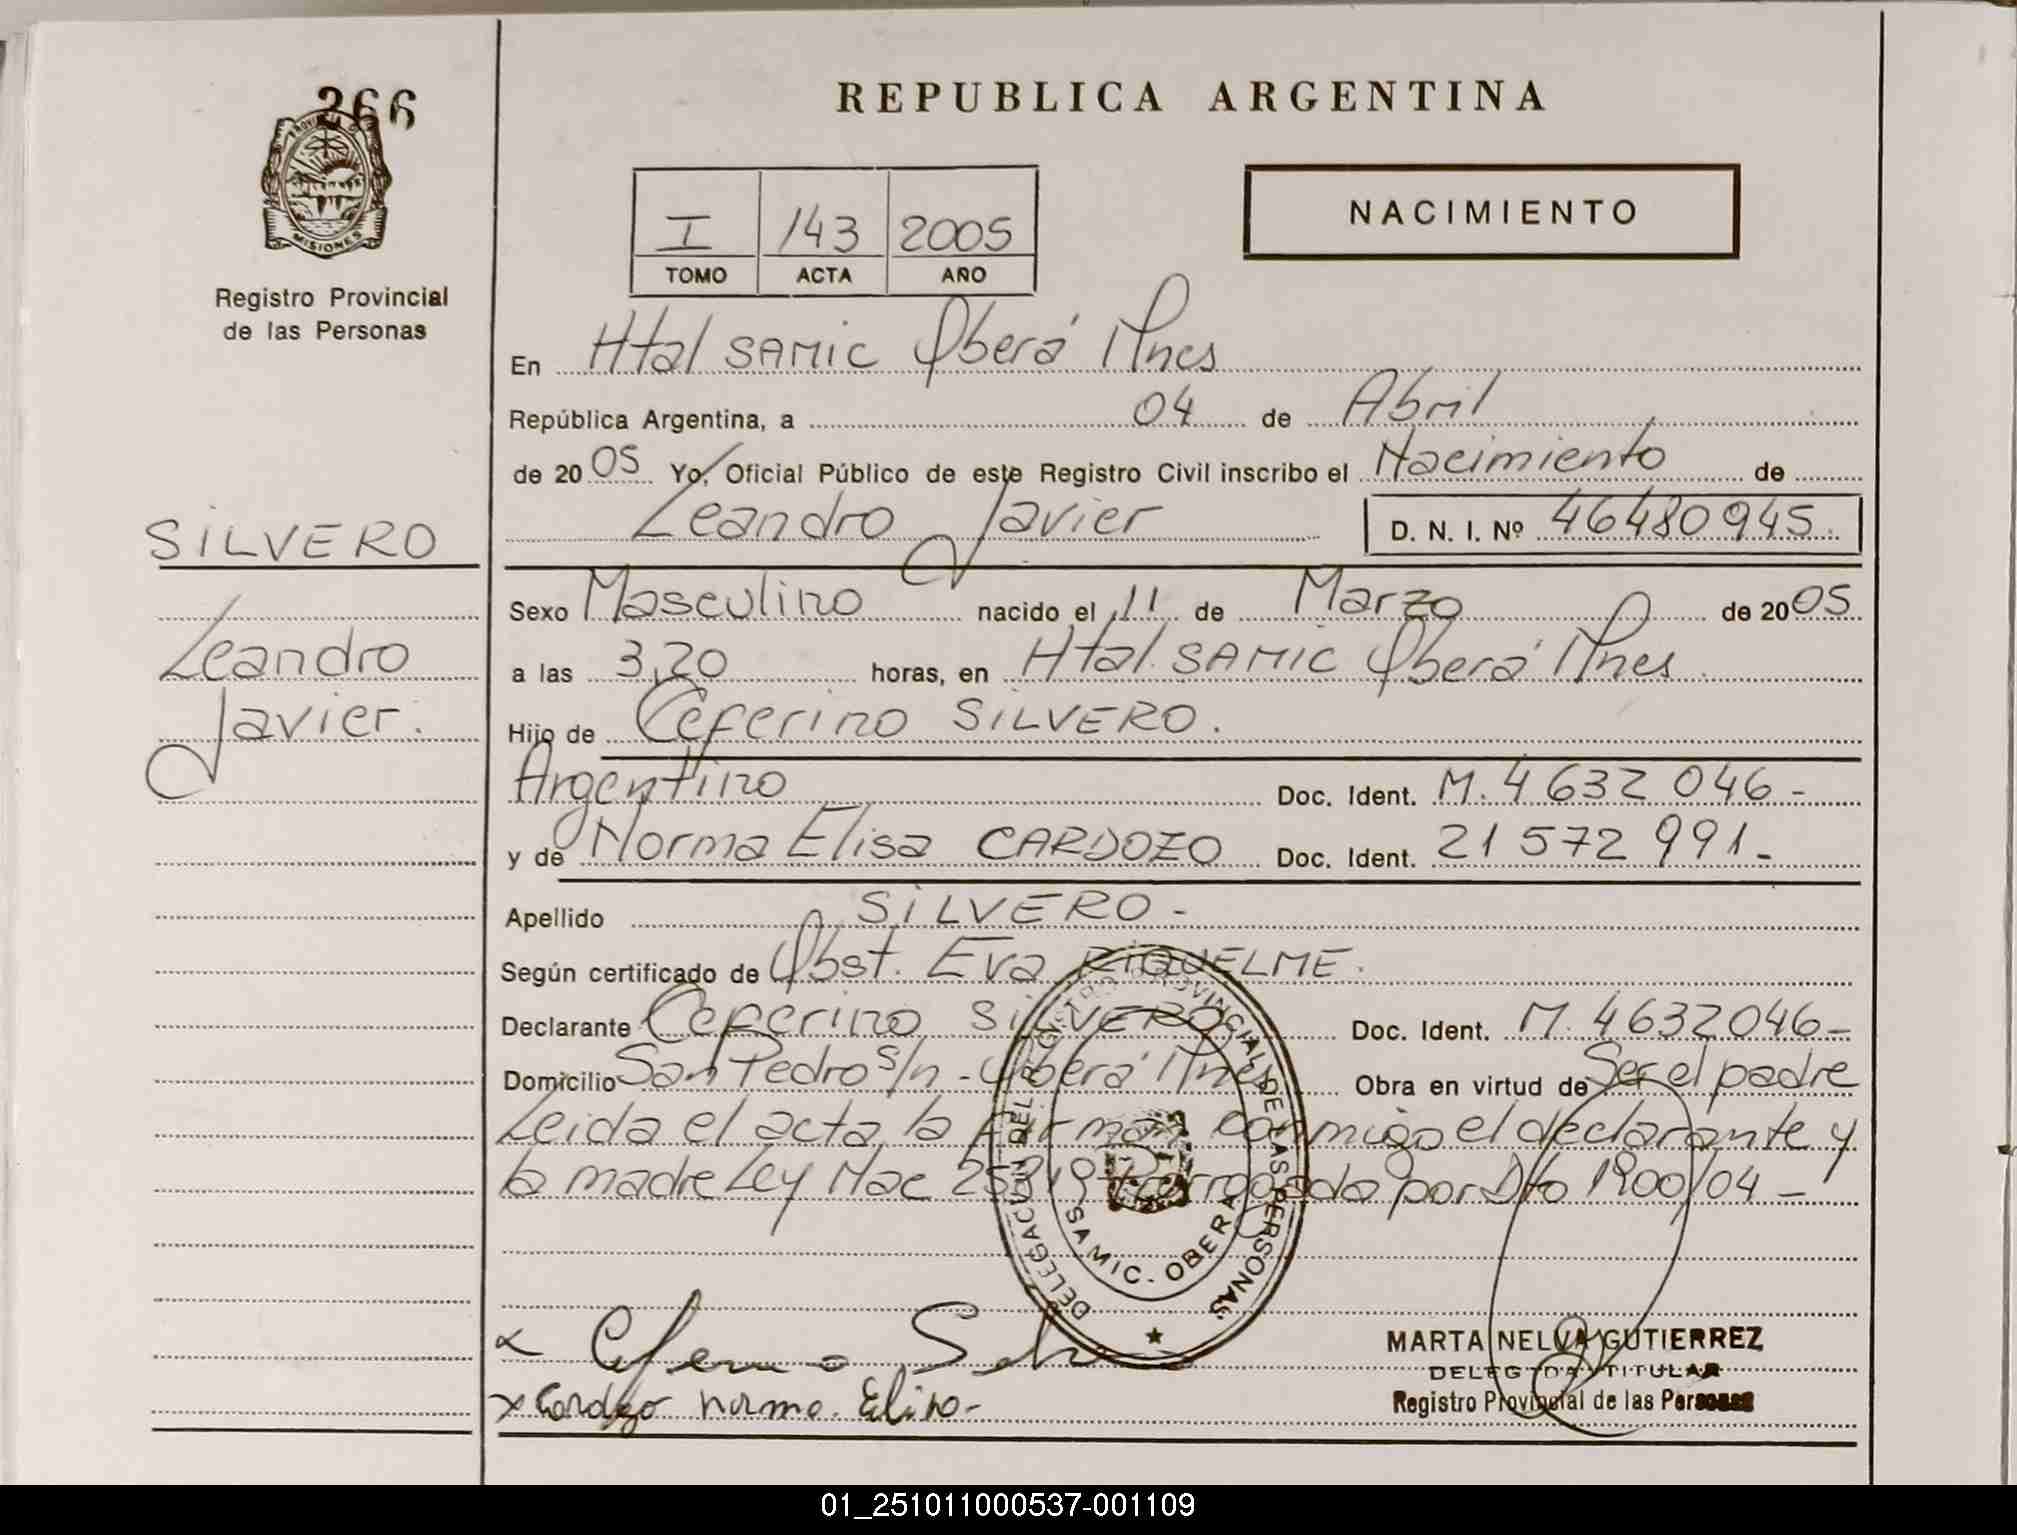 366
PROVINCIA D
MISIONES
Registro Provincial
de las Personas
REPUBLICA ARGENTINA
I 143 2005
TOMO ACTA AÑO
NACIMIENTO
En Htal SAMIC Oberá Mnes
República Argentina, a 04 de Abril
de 2005 Yo, Oficial Público de este Registro Civil inscribo el Nacimiento de
Leandro Javier D. N. I. Nº 46480945.
SILVERO
Leandro
Javier.
Sexo Masculino nacido el 11 de Marzo de 2005
a las 3,20 horas, en Htal. SAMIC Oberá Mnes
Hijo de Ceferino SILVERO.
Argentino Doc. Ident. M. 4 632 046-
y de Norma Elisa CARDOZO Doc. Ident. 21 572 991-
Apellido SILVERO-
Según certificado de Obst. Eva RIQUELME.
Declarante Ceferino SILVERO Doc. Ident. M. 4632046-
Domicilio San Pedro s/n - Oberá Mnes Obra en virtud de Ser el padre
Leida el acta, la firman conmigo el declarante y
la madre Ley Nac 25819 Prorrogada por Dto 1900/04 -
DELEGACION DEL REGISTRO PROVINCIAL DE LAS PERSONAS
SAMIC - OBERA
x Ceferino
x Cardozo norma. Elisa-
MARTA NELVA GUTIERREZ
DELEGADA TITULAR
Registro Provincial de las Personas
01_251011000537-001109